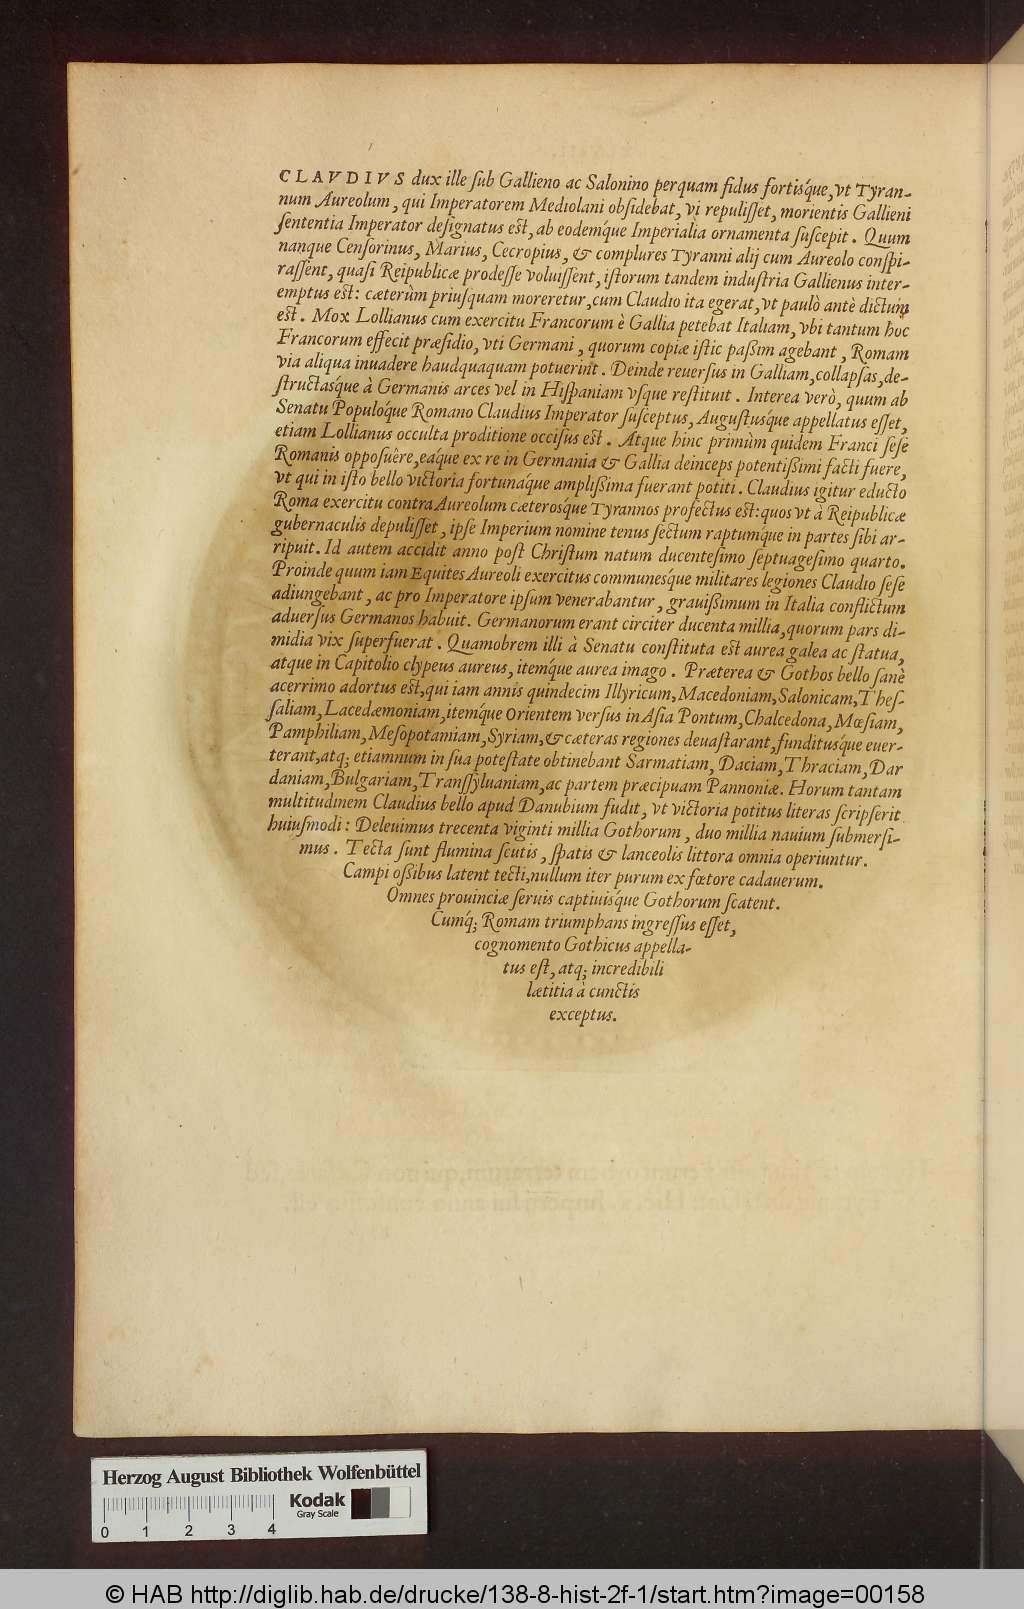 CLAVDIVS dux ille ſub Gallieno ac Salonino perquam fidus fortisq́ue, vt Tyran-
num Aureolum, qui Imperatorem Mediolani obſidebat, vi repuliſſet, morientis Gallieni
ſententia Imperator deſignatus est, ab eodemq́ue Imperialia ornamenta ſuſcepit. Quum
nanque Cenſorinus, Marius, Cecropius, & complures Tyranni alij cum Aureolo conſpi-
raſſent, quaſi Reipublicæ prodeſſe voluiſſent, iſtorum tandem induſtria Gallienus inter-
emptus est: cæterùm priuſquam moreretur, cum Claudio ita egerat, vt paulò antè dictum
est. Mox Lollianus cum exercitu Francorum è Gallia petebat Italiam, vbi tantum hoc
Francorum effecit præſidio, vti Germani, quorum copiæ iſtic paßim agebant, Romam
via aliqua inuadere haudquaquam potuerint. Deinde reuerſus in Galliam, collapſas, de-
ſtructasq́ue à Germanis arces vel in Hiſpaniam vſque reſtituit. Interea verò, quum ab
Senatu Populoq́ue Romano Claudius Imperator ſuſceptus, Auguſtusq́ue appellatus eſſet,
etiam Lollianus occulta proditione occiſus est. Atque hinc primùm quidem Franci ſeſe
Romanis oppoſuêre, eaq́ue ex re in Germania & Gallia deinceps potentißimi facti fuere,
vt qui in iſto bello victoria fortunaq́ue amplißima fuerant potiti. Claudius igitur educto
Roma exercitu contra Aureolum cæterosq́ue Tyrannos profectus est: quos vt à Reipublicæ
gubernaculis depuliſſet, ipſe Imperium nomine tenus ſectum raptumq́ue in partes ſibi ar-
ripuit. Id autem accidit anno poſt Chriſtum natum ducenteſimo ſeptuageſimo quarto.
Proinde quum iam Equites Aureoli exercitus communesq́ue militares legiones Claudio ſeſe
adiungebant, ac pro Imperatore ipſum venerabantur, grauißimum in Italia conflictum
aduerſus Germanos habuit. Germanorum erant circiter ducenta millia, quorum pars di-
midia vix ſuperfuerat. Quamobrem illi à Senatu conſtituta est aurea galea ac ſtatua,
atque in Capitolio clypeus aureus, itemq́ue aurea imago. Præterea & Gothos bello ſanè
acerrimo adortus est, qui iam annis quindecim Illyricum, Macedoniam, Salonicam, Theſ-
ſaliam, Lacedæmoniam, itemq́ue Orientem verſus in Aſia Pontum, Chalcedona, Mœſiam,
Pamphiliam, Meſopotamiam, Syriam, & cæteras regiones deuaſtarant, funditusq́ue euer-
terant, atq; etiamnum in ſua poteſtate obtinebant Sarmatiam, Daciam, Thraciam, Dar
daniam, Bulgariam, Tranſſyluaniam, ac partem præcipuam Pannoniæ. Horum tantam
multitudinem Claudius bello apud Danubium fudit, vt victoria potitus literas ſcripſerit
huiuſmodi: Deleuimus trecenta viginti millia Gothorum, duo millia nauium ſubmerſi-
mus. Tecta ſunt flumina ſcutis, ſpatis & lanceolis littora omnia operiuntur.
Campi oßibus latent tecti, nullum iter purum ex fœtore cadauerum.
Omnes prouinciæ ſeruis captiuisq́ue Gothorum ſcatent.
Cumq́; Romam triumphans ingreſſus eſſet,
cognomento Gothicus appella-
tus eſt, atq; incredibili
lætitia à cunctis
exceptus.
Herzog August Bibliothek Wolfenbüttel
Kodak
Gray Scale
0 1 2 3 4
© HAB http://diglib.hab.de/drucke/138-8-hist-2f-1/start.htm?image=00158